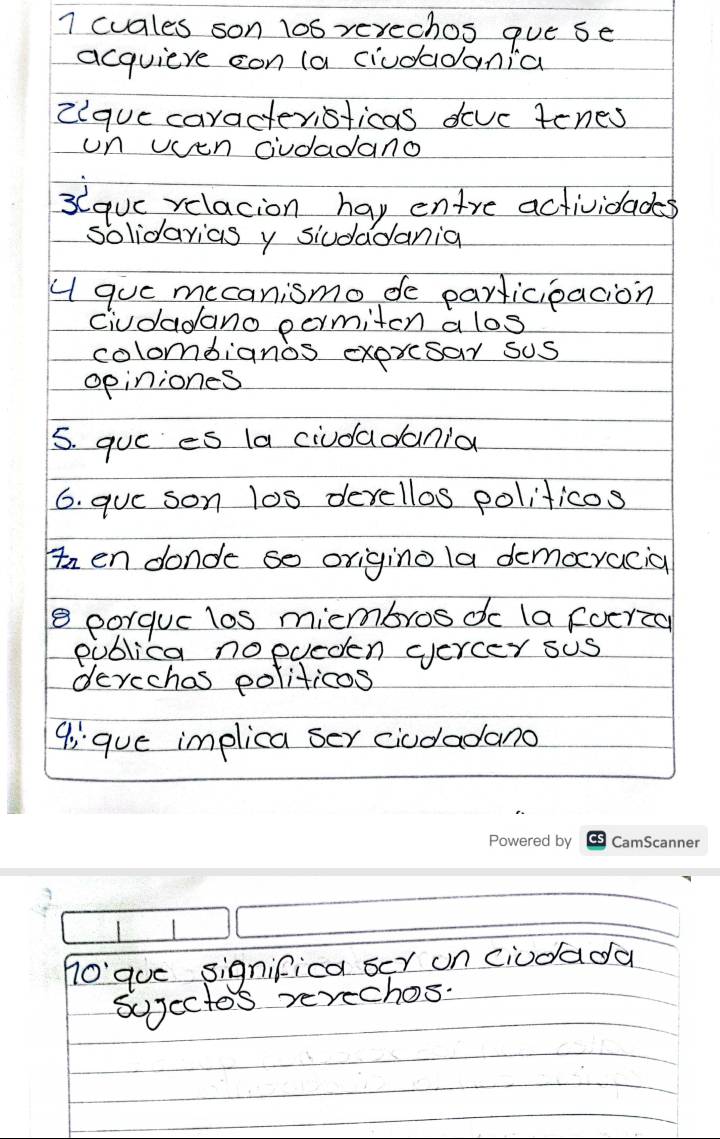 1 cuales son los rerechos que se
acquiere con la ciudadania
2¿que caracteristicas deve tenes
un vven ciudadano
3¿que relacion hay entre actividades
solidarias y siudadania
4 que mecanismo de participacion
ciudadano permiten a los
colombianos expresar sus
opiniones
5. que es la ciudadania
6. que son los derellos politicos
7 en donde se origino la democracia
8 porque los miembros de la fuerza
publica no pueden ejercer sus
derechas politicos
9. que implica ser ciudadano
Powered by CS CamScanner
10 que significa ser un ciudada
sujectos rerechos.